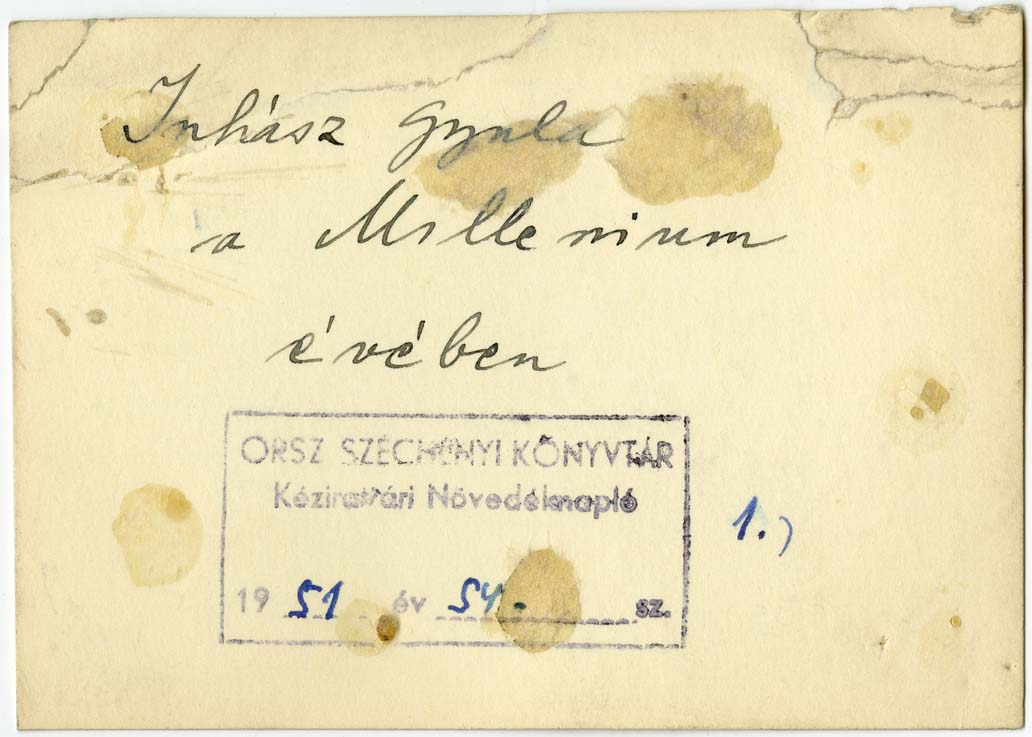 Juhász Gyula
a Millenium
évében
ORSZ SZÉCHÉNYI KÖNYVTÁR
Kézirattári Növedéknapló
1.)
19 51 év 54. sz.